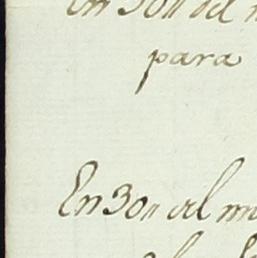 En 30,, del m
para
En 30,, del m